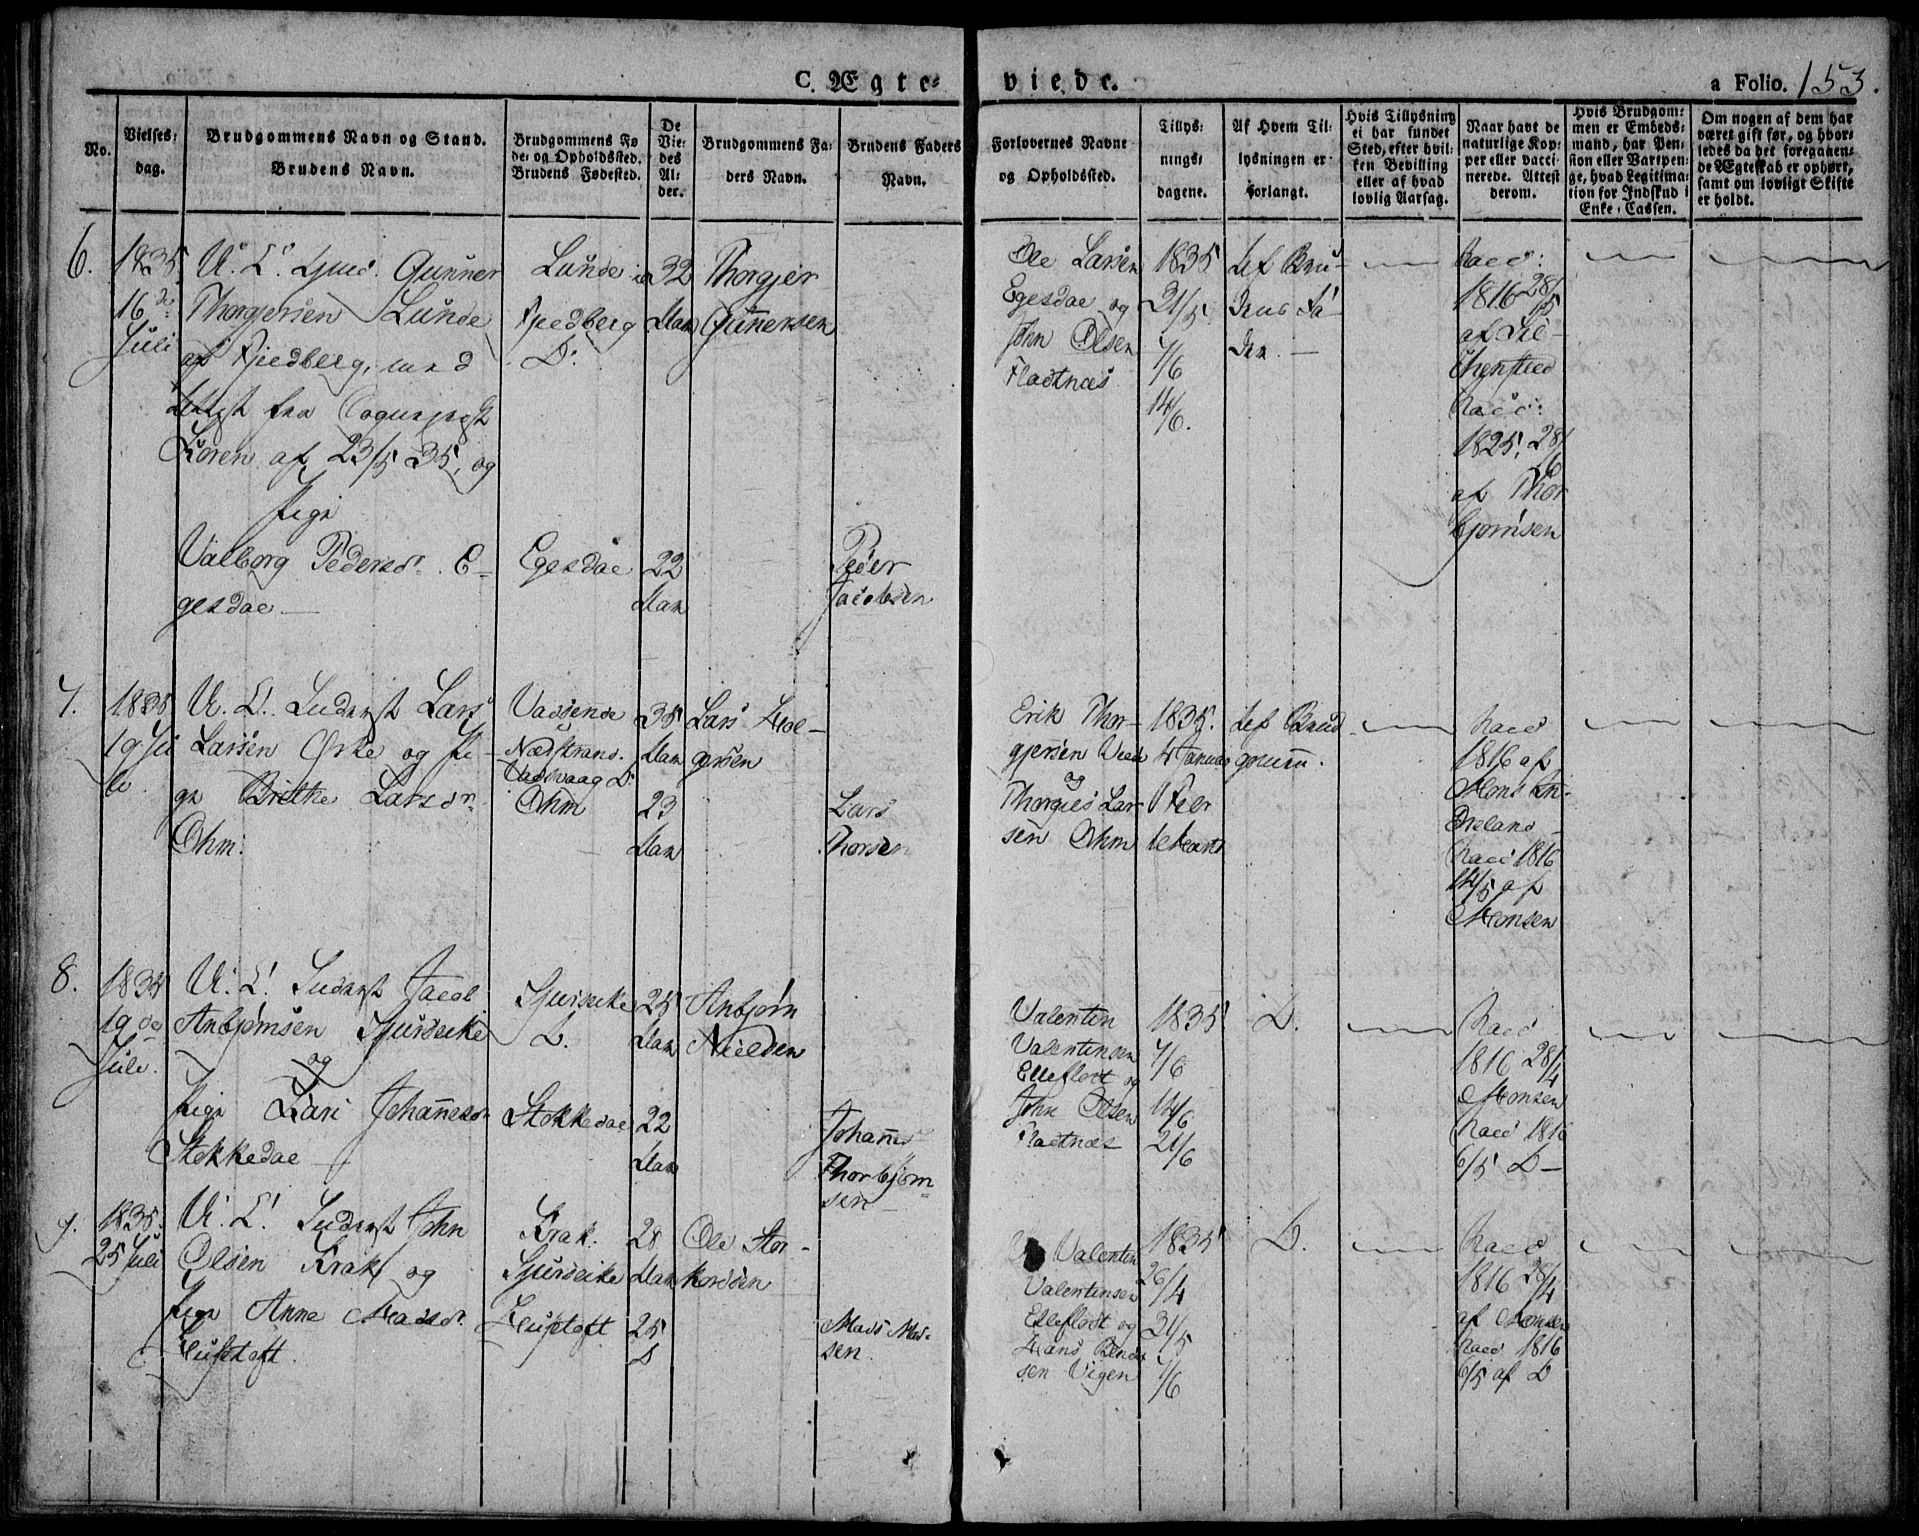 C. Ægte-
viede.
a Folio. 153.
No.
Vielses-
dag.
Brudgommens Navn og Stand.
Brudens Navn.
Brudgommens Fø
de- og Opholdssted.
Brudens Fødested.
De
Vie-
des
Al-
der.
Brudgommens Fa-
ders Navn.
Brudens Faders
Navn.
Forlovernes Navne
og Opholdssted.
Tillys-
nings-
dagene.
Af Hvem Til-
lysningen er
forlangt.
Hvis Tillysning
ei har fundet
Sted, efter hvil-
ken Bevilling
eller af hvad
lovlig Aarsag.
Naar havt de
naturlige Kop-
per eller vacci-
nerede. Attest
derom.
Hvis Brudgom-
men er Embeds-
mand, har Pen-
sion eller Vartpen-
ge, hvad Legitima-
tion for Indskud i
Enke-Cassen.
Om nogen af dem har
været gift før, og hvor-
ledes da det foregaaen-
de Ægteskab er ophørt,
samt om lovligt Skifte
er holdt.
6.
1835
16de
Juli
U. C. Gunner
Thorgjersen Lunde
af Fjedberg, med
fra
Koren af 23/5 35, og
Pige
Valborg Pedersd. E-
gesdal
Lunde i
Fjedberg
D:
Egesdal
32
Aar
22
Aar
Thorgjer
Gunnersen
Peder
Jacobsen
Ole Larsen
Egesdal og
John Olsen
Fladtnæs
1835
31/5
7/6
14/6.
Af Bru-
dens Fa-
der.
Vacc:
1816 28/5
af
Vacc:
1825, 28/6
af Thor
bjørnsen
7.
1835
19 Ju
li
U. C. Lars
Larsen Ørke og Pi-
ge Brithe Larsdr.
Ohm:
Vadsende
Nædstrand.
Vadsvaag D.
Ohm
35
Aar
23
Aar
Lars Hol-
gersen
Lars
Thorsen
Erik Thor-
gjersen
og
Thorgies Lar-
sen Ohm
1835.
4 Januar
1 Febr
1 Marts
Af Brud
gomm.
Vacc
1816 af
Mons An-
dreland
Vacc 1816
14/5 af
Monsen
8.
1835
19 de
Juli.
U. C. Jacob
Anbjørnsen Sjurseike
og
Pige Kari Johannesdr
Stokkedal
Sjurseike
D.
Stokkedal
25
Aar
22
Aar
Anbjørn
Nielsen
Johannes
Thorbjørn-
sen
Valentin
Valentinsen
Elleflodt og
John Olsen
Fladtnæs
1835
7/6
14/6
21/6
D.
Vacc
1816 28/4
Monsen
Vacc 1816
6/5 D
9.
1835.
25 Juli
U. C. John
Olsen Krak og
Pige Anne Madsdr.
Tuftetoft.
Krak.
Sjurseike
Tuftetoft
28
Aar
25
D
Ole Stor-
korsen
Mads Mad-
sen.
Valentin
Valentinsen
Elleflodt og
Hans Bendt
sen Vigen
1835
26/4
31/5
7/6
D.
Vacc
1816 28/4
af Monsen
Vacc 1816
6/5 af D